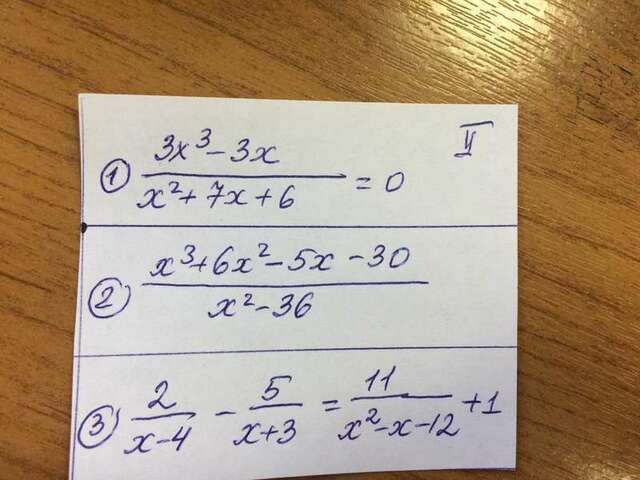 II
① (3x³ - 3x)/(x² + 7x + 6) = 0
② (x³ + 6x² - 5x - 30)/(x² - 36)
③ 2/(x - 4) - 5/(x + 3) = 11/(x² - x - 12) + 1